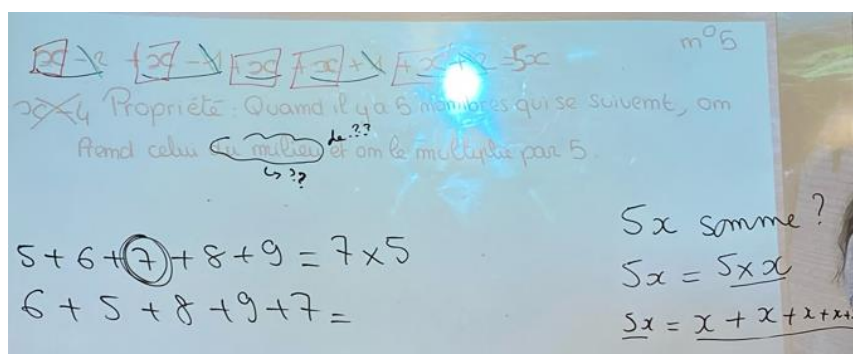 n°5
x - 2 + x - 1 + x + x + 1 + x + 2 = 5x
x-4 Propriété : Quand il y a 5 nombres qui se suivent, on
Prend celui du milieu et on le multiplie par 5.
de ??
↳ ??
5x somme ?
5 + 6 + 7 + 8 + 9 = 7 x 5
5x = 5 x x
6 + 5 + 8 + 9 + 7 =
5x = x + x + x + x +